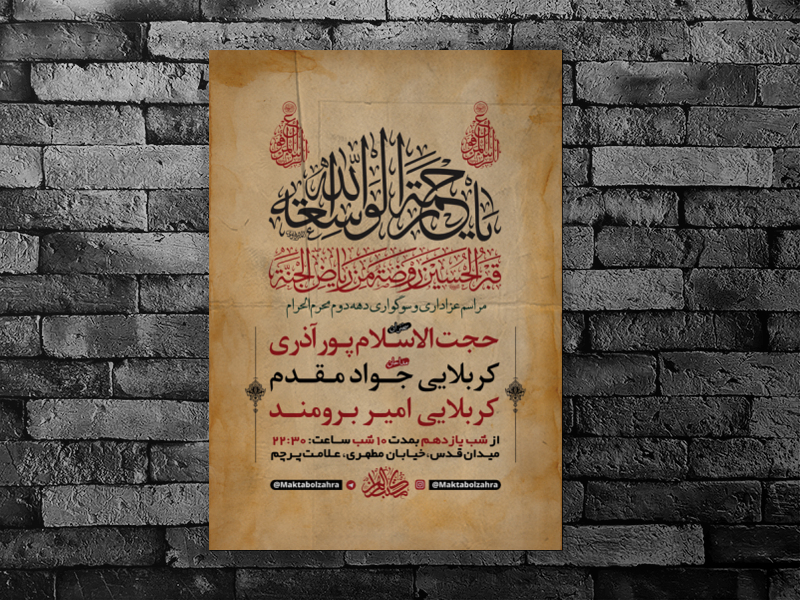 یا رحمة الله الواسعة
قبر الحسین روضة من ریاض الجنة
مراسم عزاداری و سوگواری دهه دوم محرم الحرام
حجت الاسلام پورآذری
کربلایی جواد مقدم
کربلایی امیر برومند
از شب یازدهم بمدت ۱۰ شب ساعت: ۲۲:۳۰
میدان قدس، خیابان مطهری، علامت پرچم
@Maktabolzahra @Maktabolzahra